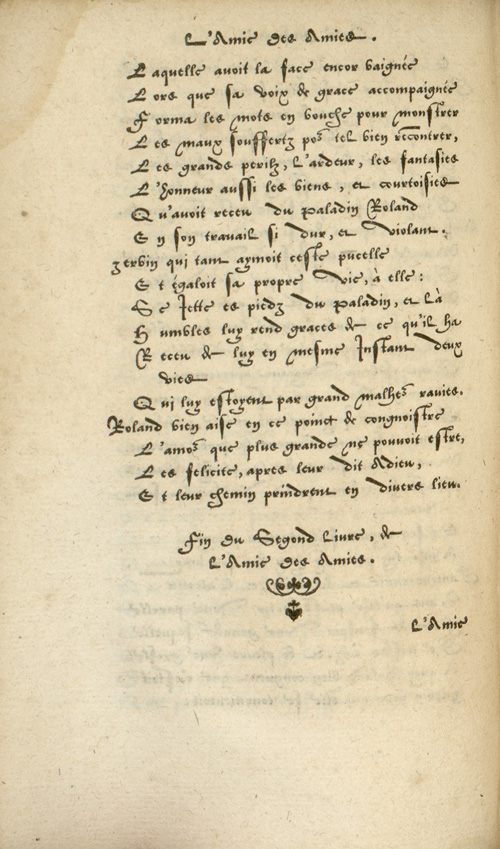 L'Amie des Amies.
Laquelle avoit la face encor baignée
Lors que sa voix de grace accompaignée
Forma les mots en bouche pour monstrer
Les maux souffertz por tel bien rēcontrer,
Les grands perilz, L'ardeur, les fantasies
L'honneur aussi les biens, et courtoisies
Qu'avoit receu du Paladin Roland
En son travail si dur, et violant.
Zerbin qui tant aymoit ceste pucelle
Et égaloit sa propre vie, à elle:
Se Jette es piedz du Paladin, et là
Humbles luy rend graces de ce qu'il ha
Receu de luy en mesme Instant deux
vies
Qui luy estoyent par grand malher ravies.
Roland bien aise en ce poinct de congnoistre
L'amor que plus grande ne pouvoit estre,
Les felicite, apres leur dit Adieu,
Et leur chemin prindrent en divers lieu.
Fin du Segond Livre, de
L'Amie des Amies.
L'Amie